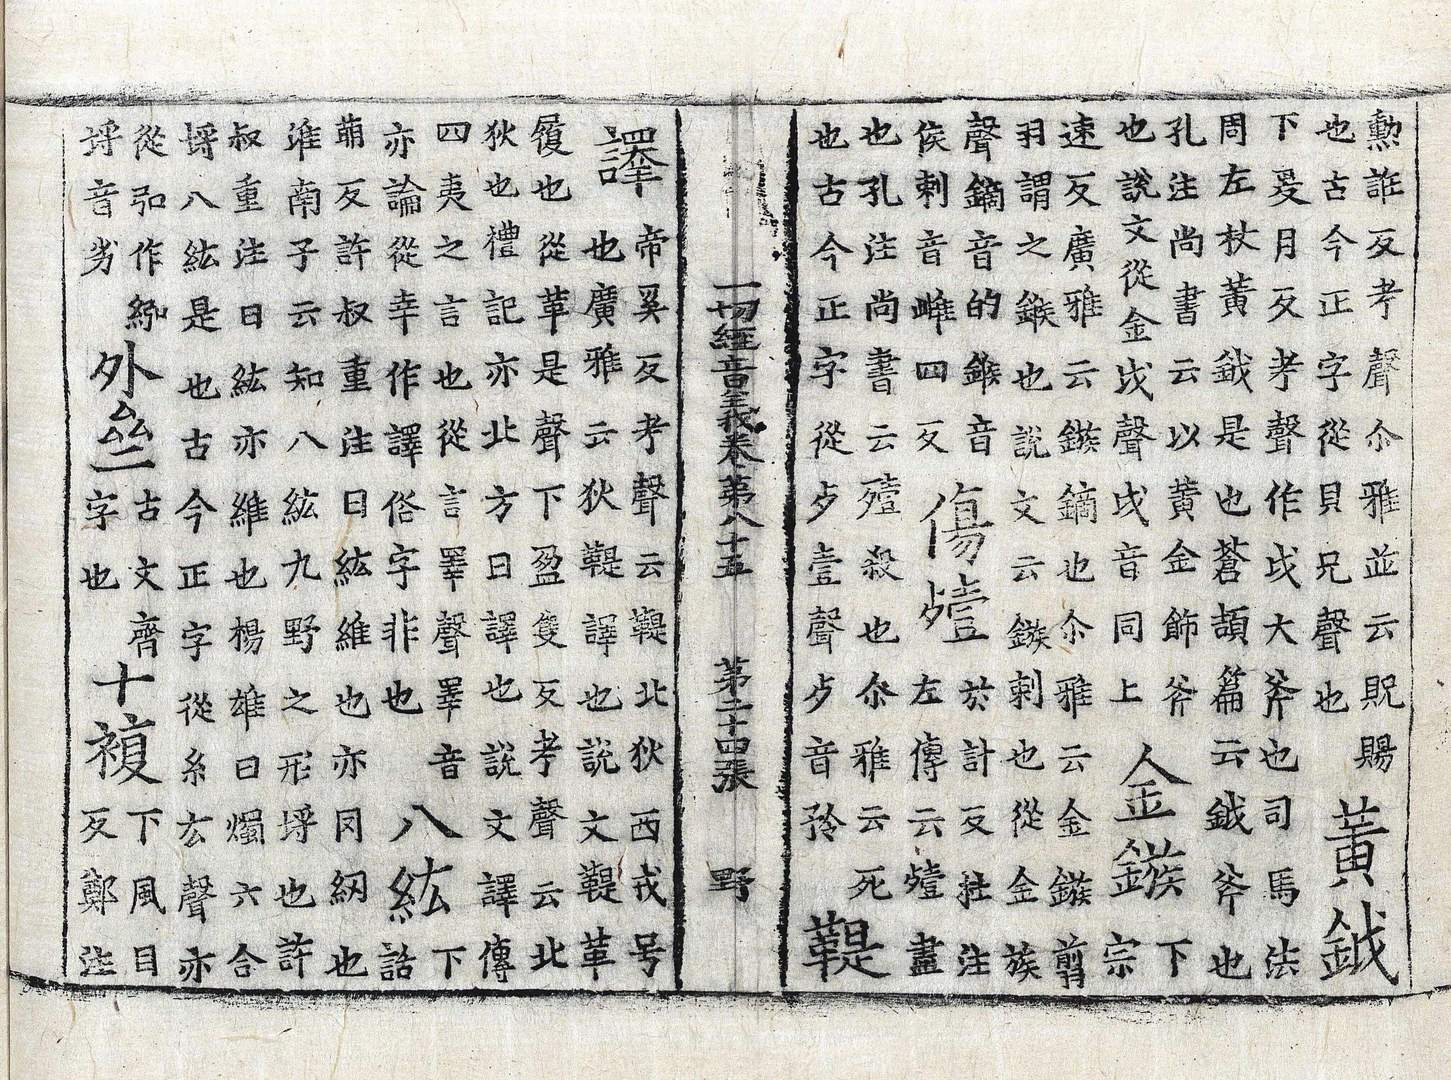 勲誑反考聲尒雅並云貺賜
也古今正字從貝兄聲也
黃鉞
下爰月反考聲作戉大斧也司馬法
周左杖黃鉞是也蒼頡篇云鉞斧也
孔注尚書云以黃金飾斧
也說文從金戉聲戉音同上
金鏃
下
宗
速反廣雅云鏃鏑也尒雅云金鏃剪
羽謂之鍭也說文云鏃刺也從金族
聲鏑音的鍭音
侯刺音雌四反
傷殪
於計反杜注
左傳云殪盡
也孔注尚書云殪殺也尒雅云死
也古今正字從歹壹聲歹音矜
鞮
一切經音義卷第八十五 第二十四張 野
譯
帝奚反考聲云鞮北狄西戎号
也廣雅云狄鞮譯也說文鞮革
履也從革是聲下盈隻反考聲云北
狄也禮記亦北方曰譯也說文譯傳
四夷之言也從言睪聲睪音
亦論從幸作譯俗字非也
八紘
下
話
萌反許叔重注曰紘維也亦罔紉也
淮南子云知八紘九野之形埒也許
叔重注曰紘亦維也楊雄曰燭六合
埒八紘是也古今正字從糸厷聲亦
從弘作
埒音劣
外亝
古文齊
字也
十複
下風目
反鄭注